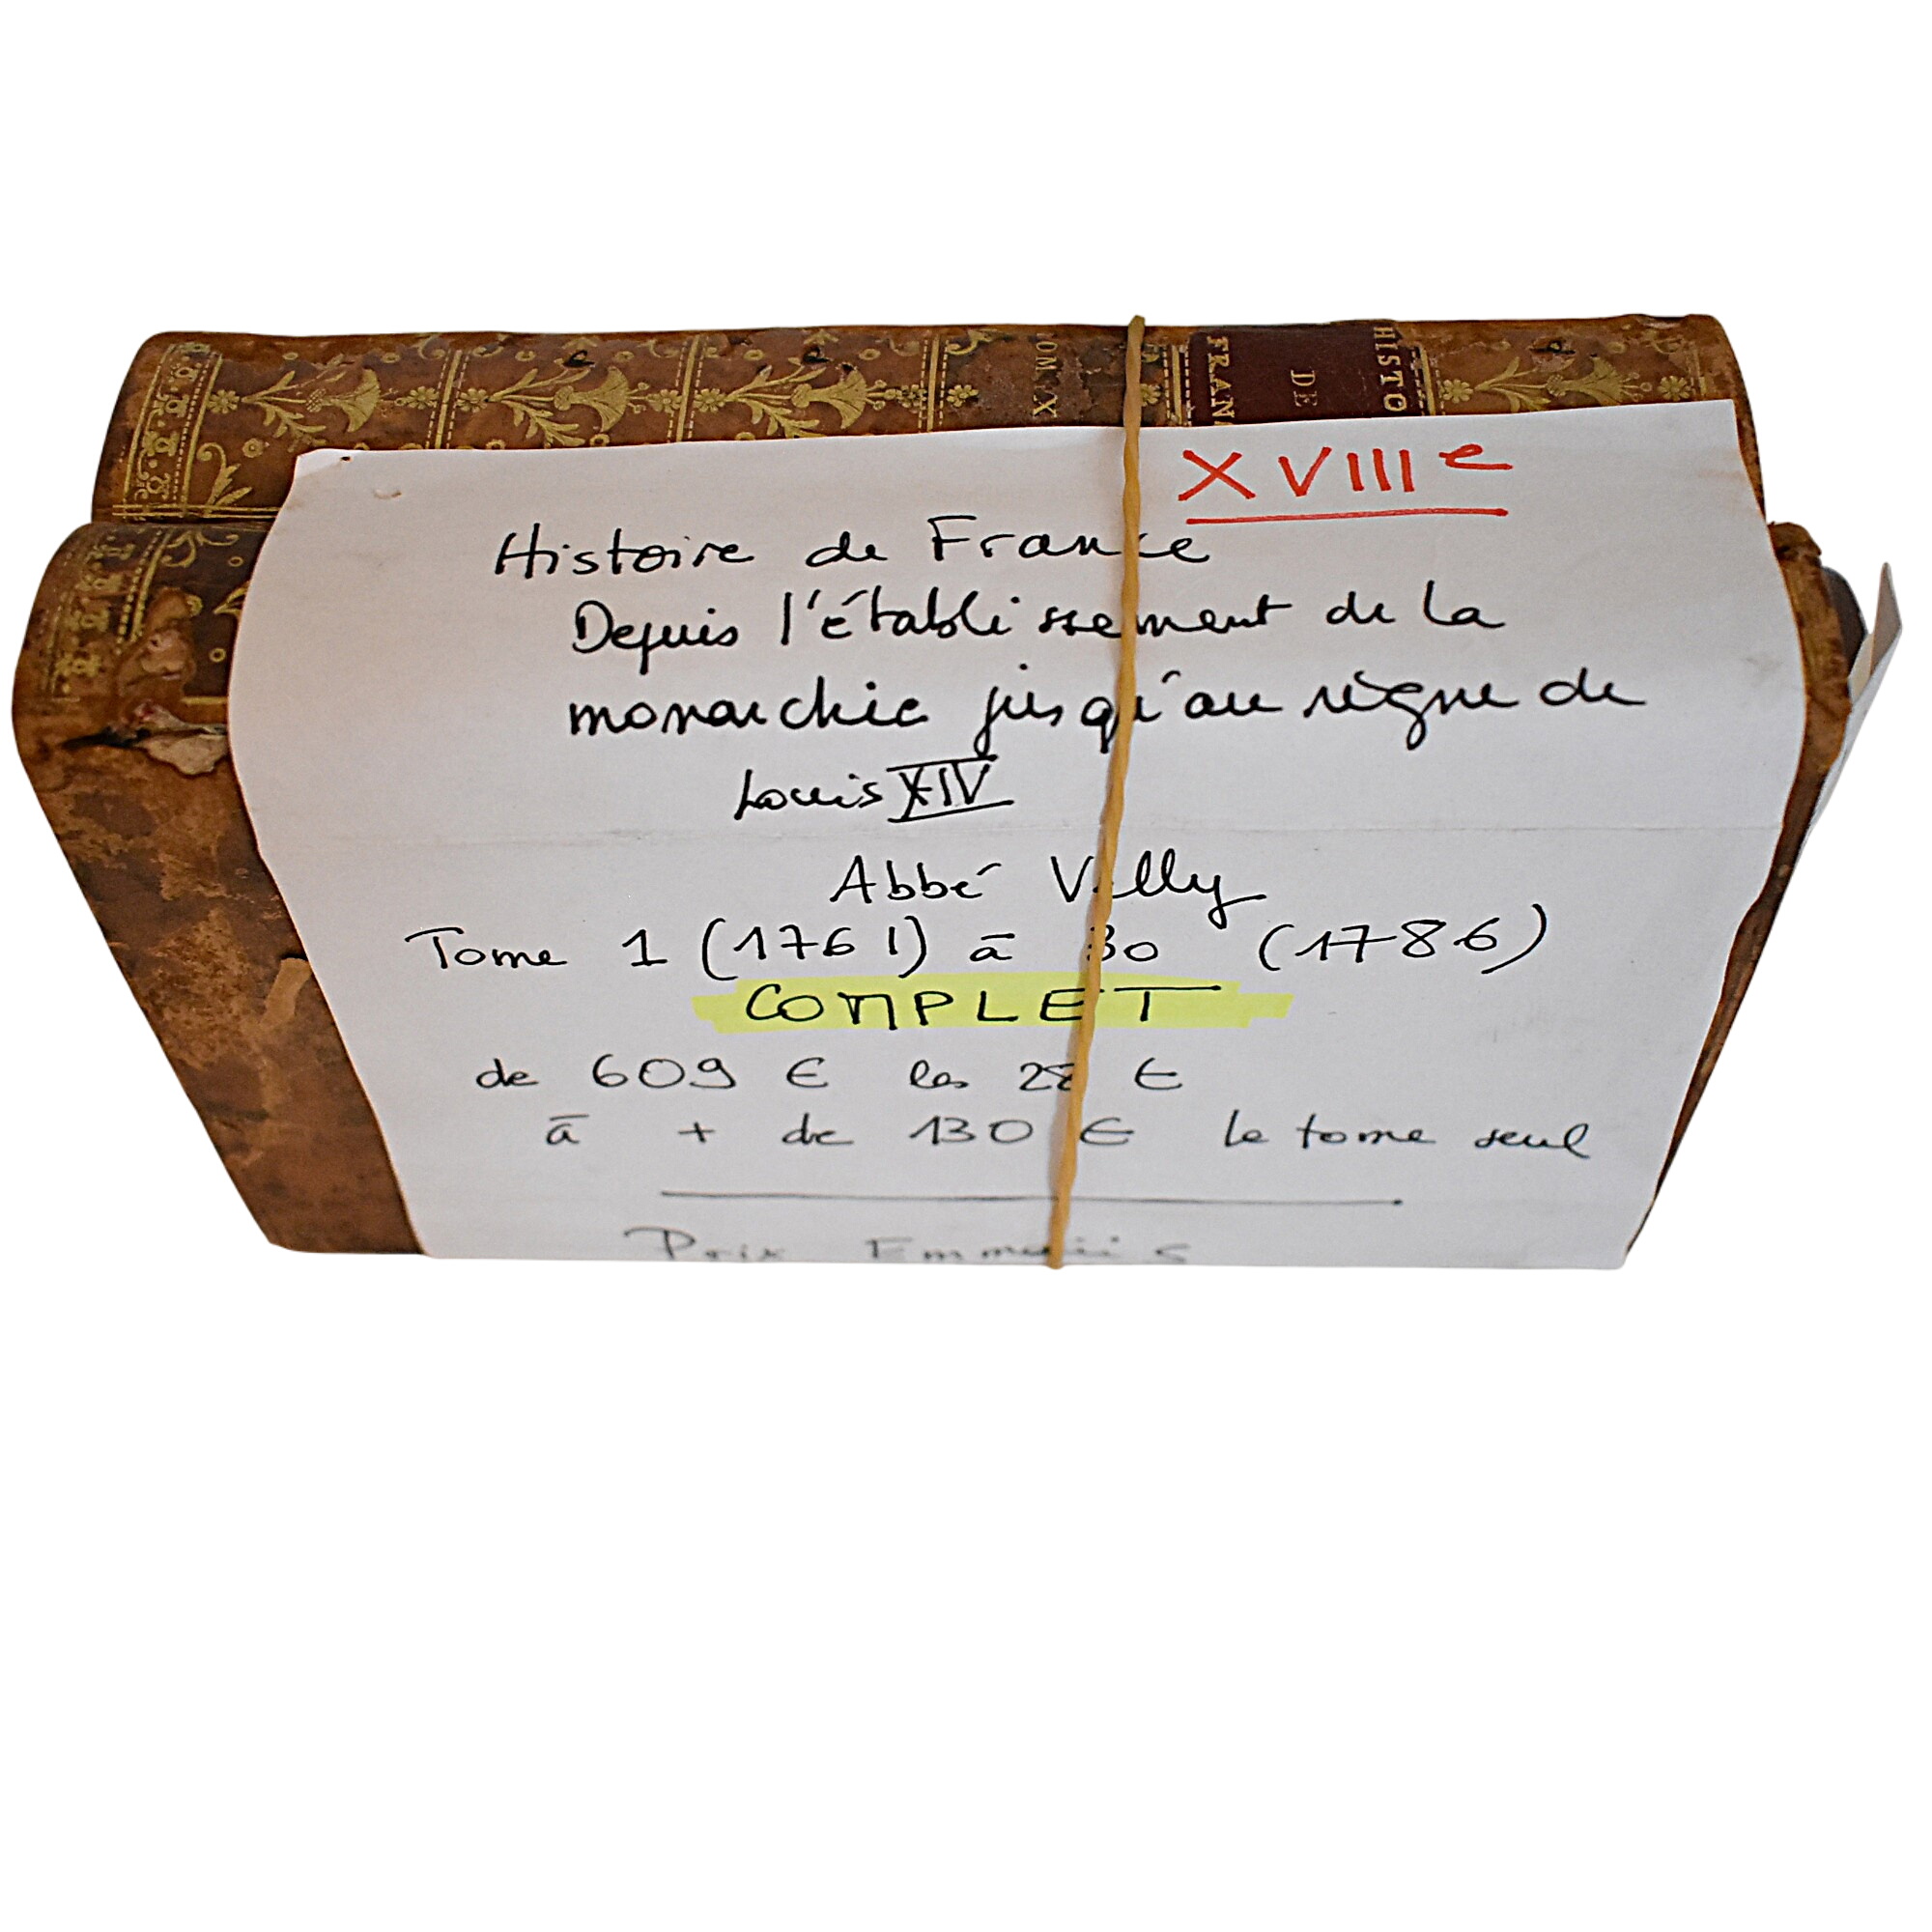 TOM. X
HISTO
DE
FRAN
XVIIIe
Histoire de France
Depuis l'établissement de la
monarchie jusqu'au règne de
Louis XIV
Abbé Velly
Tome 1 (1761) à 30 (1786)
COMPLET
de 609 € les 28 €
à + de 130 € le tome seul
Prix Emmaüs